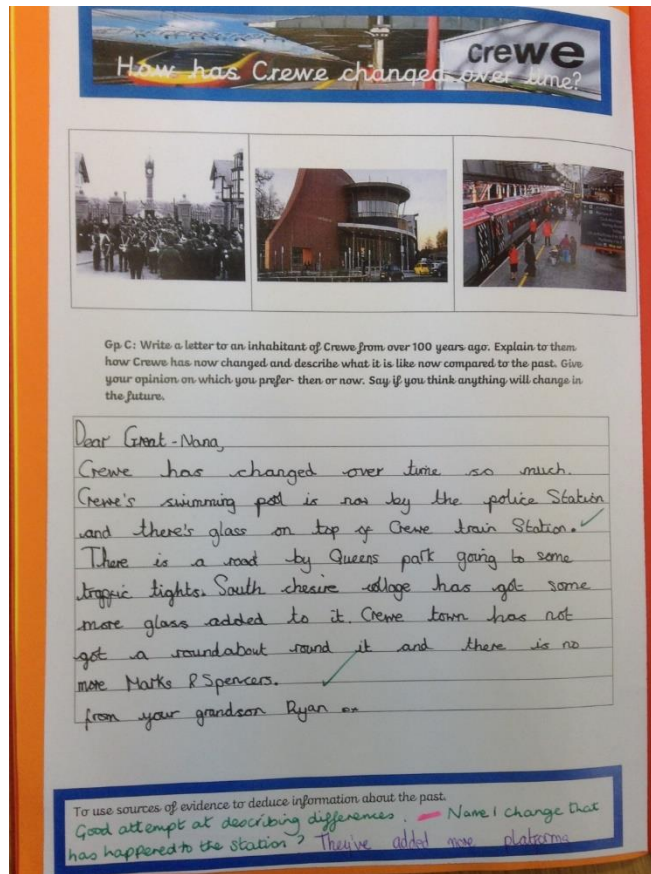 crewe
How has Crewe changed over time?
Gp C: Write a letter to an inhabitant of Crewe from over 100 years ago. Explain to them
how Crewe has now changed and describe what it is like now compared to the past. Give
your opinion on which you prefer- then or now. Say if you think anything will change in
the future.
Dear Great-Nana,
Crewe has changed over time so much.
Crewe's swimming pool is now by the police Station
and there's glass on top of Crewe train Station.
There is a road by Queens park going to some
traffic tights. South chesire collage has got some
more glass added to it. Crewe town has not
got a roundabout round it and there is no
more Marks & Spencers.
from your grandson Ryan
To use sources of evidence to deduce information about the past.
Good attempt at describing differences. — Name 1 change that
has happened to the station? They've added more platforms